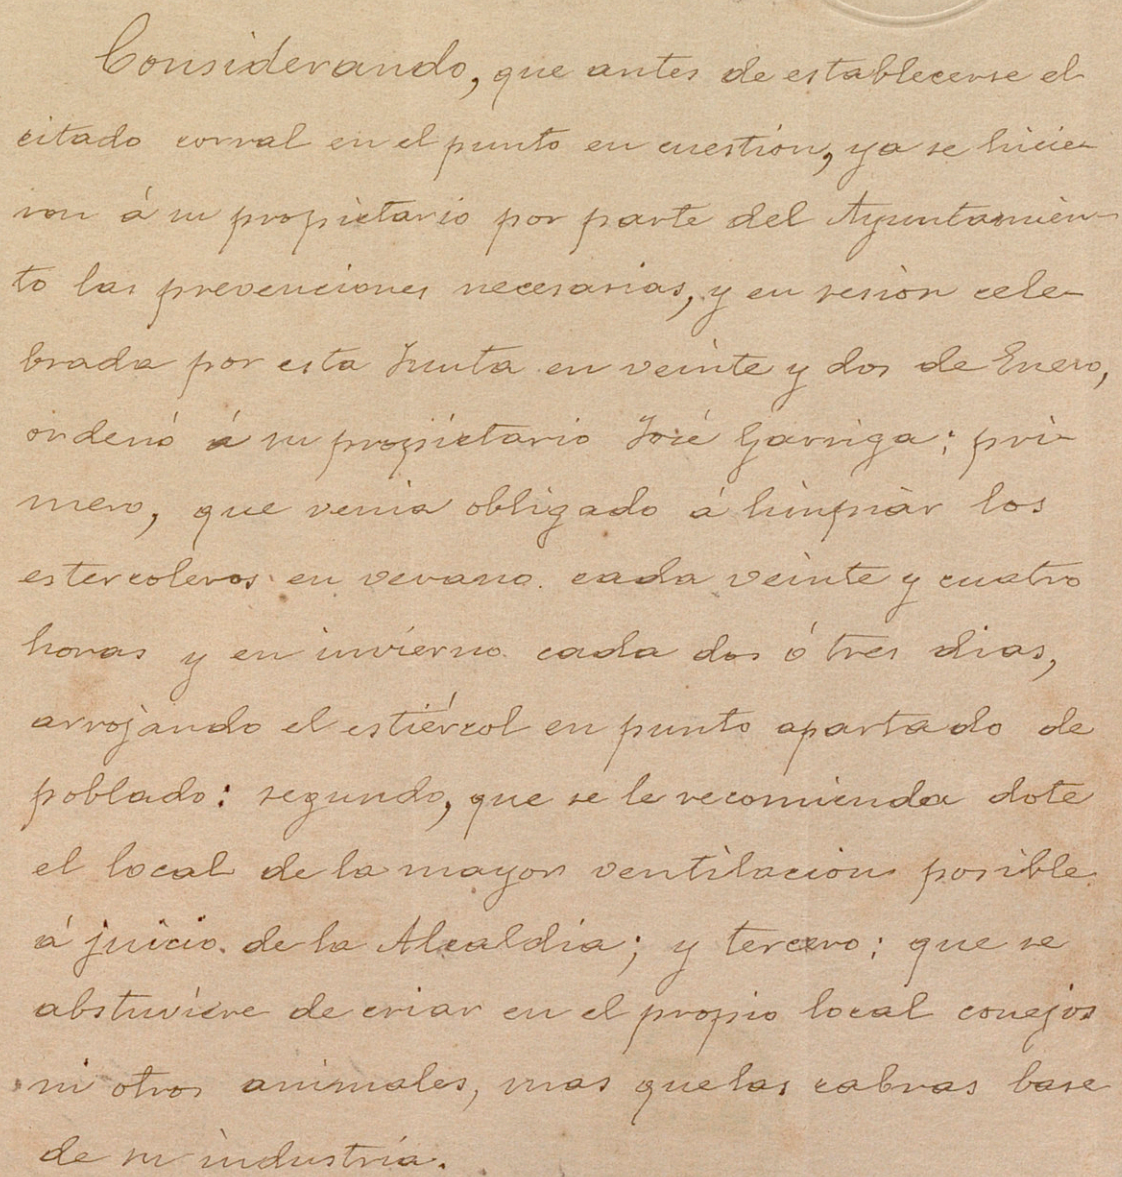 Considerando, que antes de establecerse el
citado corral en el punto en cuestión, ya se hicie-
ron á su propietario por parte del Ayuntamien-
to las prevenciones necesarias, y en sesión cele-
brada por esta Junta en veinte y dos de Enero,
ordenó á su propietario José Garriga: pri-
mero, que venia obligado á limpiar los
estercoleros en verano cada veinte y cuatro
horas y en invierno cada dos ó tres dias,
arrojando el estiércol en punto apartado de
poblado: segundo, que se le recomienda dote
el local de la mayor ventilacion posible
á juicio de la Alcaldia; y tercero: que se
abstuviere de criar en el propio local conejos
ni otros animales, mas que las cabras base
de su industria.